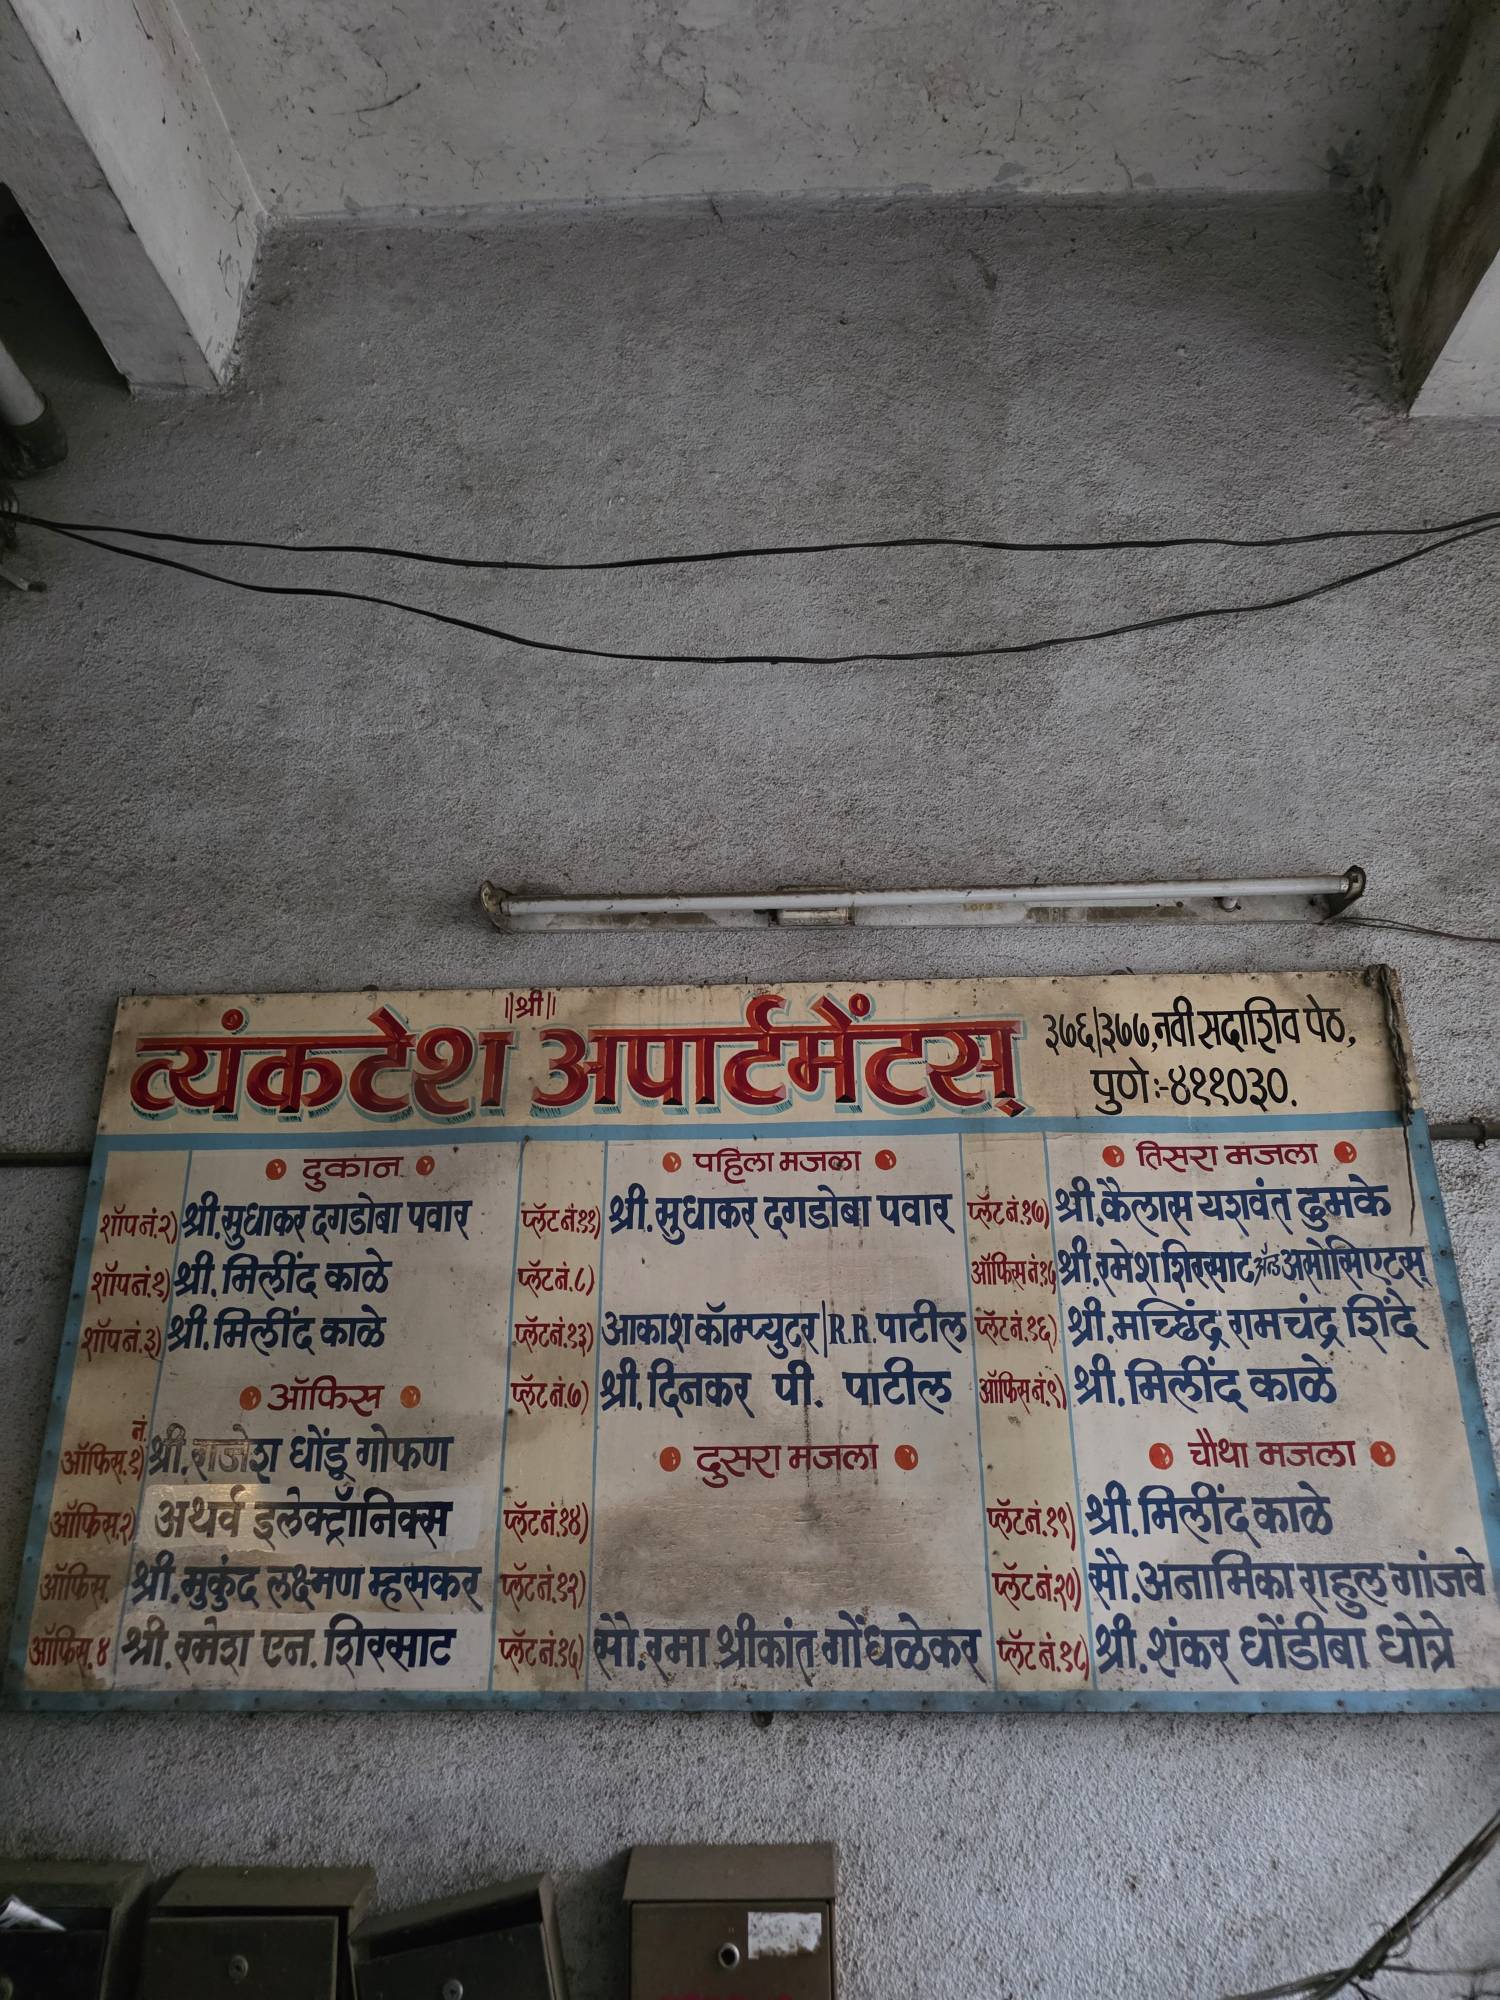 ||श्री||
व्यंकटेश अपार्टमेंटस्
३७६/३७७, नवी सदाशिव पेठ,
पुणे:-४११०३०.
दुकान
शॉप नं.२) श्री.सुधाकर दगडोबा पवार
शॉप नं.१) श्री.मिलींद काळे
शॉप नं.३) श्री.मिलींद काळे
ऑफिस
नं.
ऑफिस.१) श्री.राजेश धोंडू गोफण
ऑफिस.२) अथर्व इलेक्ट्रॉनिक्स
ऑफिस. श्री.मुकुंद लक्ष्मण म्हसकर
ऑफिस.४ श्री.रमेश एन. शिरसाट
पहिला मजला
प्लॅट नं.११) श्री.सुधाकर दगडोबा पवार
प्लॅट नं.८)
प्लॅट नं.१३) आकाश कॉम्प्युटर/R.R.पाटील
प्लॅट नं.७) श्री.दिनकर पी. पाटील
दुसरा मजला
प्लॅट नं.१४)
प्लॅट नं.१२)
प्लॅट नं.१५) सौ.रमा श्रीकांत गोंधळेकर
तिसरा मजला
प्लॅट नं.१७) श्री.कैलास यशवंत ढुमके
ऑफिस नं.१५ श्री.रमेश शिरसाट अँड असोसिएटस्
प्लॅट नं.१६) श्री.मच्छिंद्र रामचंद्र शिंदे
ऑफिस नं.९) श्री.मिलींद काळे
चौथा मजला
प्लॅट नं.१९) श्री.मिलींद काळे
प्लॅट नं.२०) सौ.अनामिका राहुल गांजवे
प्लॅट नं.१८) श्री.शंकर धोंडीबा धोत्रे